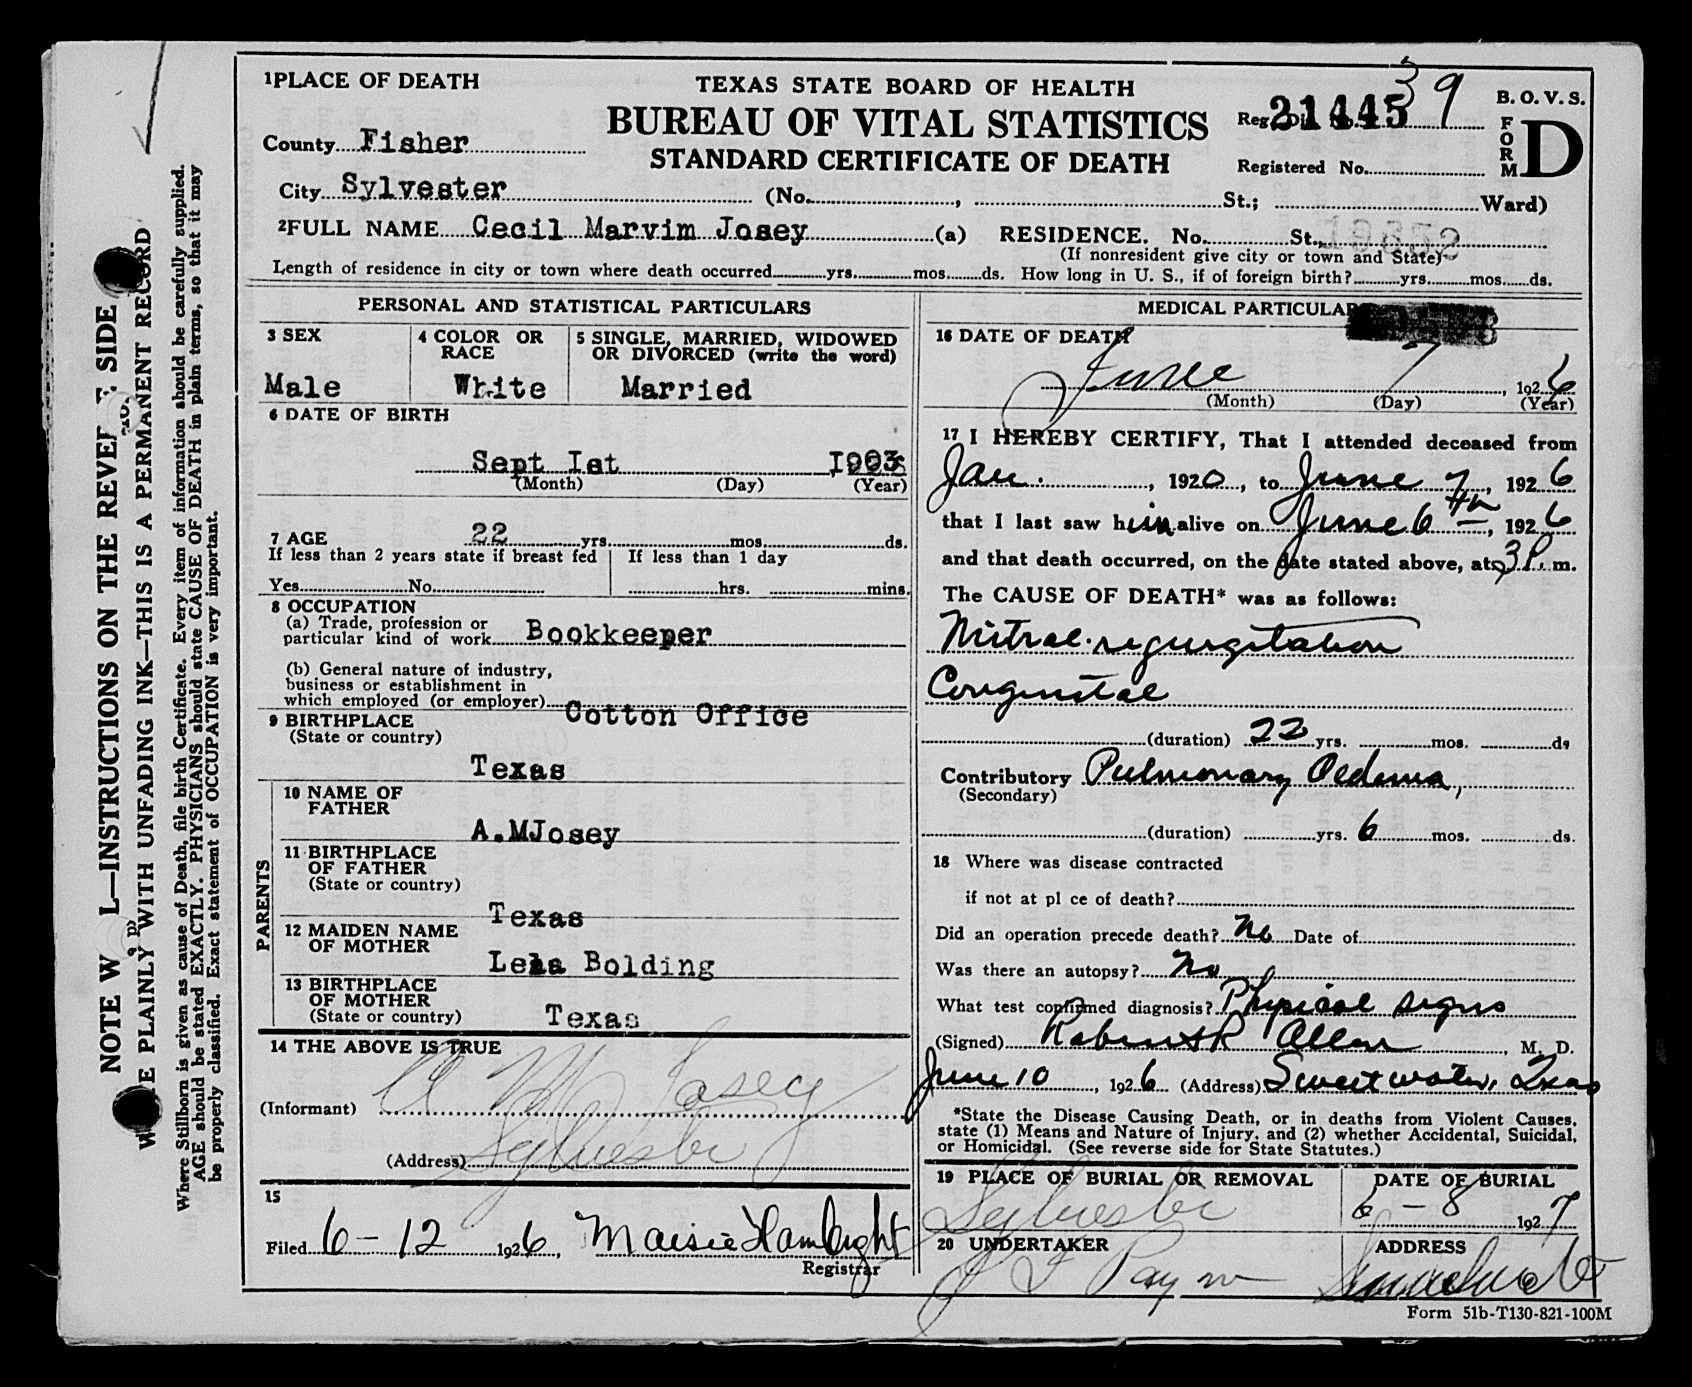 1 PLACE OF DEATH
TEXAS STATE BOARD OF HEALTH
BUREAU OF VITAL STATISTICS
STANDARD CERTIFICATE OF DEATH
21445 39
Reg. Di No.
Registered No.
B. O. V. S.
FORM D
County Fisher
City Sylvester (No. , St.; Ward)
2 FULL NAME Cecil Marvim Josey (a) RESIDENCE. No. St.,
(If nonresident give city or town and State)
Length of residence in city or town where death occurred yrs. mos. ds. How long in U. S., if of foreign birth? yrs. mos. ds.
PERSONAL AND STATISTICAL PARTICULARS
3 SEX
Male
4 COLOR OR RACE
White
5 SINGLE, MARRIED, WIDOWED
OR DIVORCED (write the word)
Married
6 DATE OF BIRTH
Sept Ist I903
(Month) (Day) (Year)
7 AGE 22 yrs. mos. ds.
If less than 2 years state if breast fed
Yes No
If less than 1 day
hrs. mins.
8 OCCUPATION
(a) Trade, profession or
particular kind of work Bookkeeper
(b) General nature of industry,
business or establishment in
which employed (or employer) Cotton Office
9 BIRTHPLACE
(State or country)
Texas
PARENTS
10 NAME OF
FATHER
A.MJosey
11 BIRTHPLACE
OF FATHER
(State or country)
Texas
12 MAIDEN NAME
OF MOTHER
Lela Bolding
13 BIRTHPLACE
OF MOTHER
(State or country) Texas
14 THE ABOVE IS TRUE
(Informant) A M Josey
(Address) Sylvester
15
Filed 6-12 1926, Maisie Hambright
Registrar
MEDICAL PARTICULAR
16 DATE OF DEATH
June 7, 1926
(Month) (Day) (Year)
17 I HEREBY CERTIFY, That I attended deceased from
Jan. , 1920, to June 7, 1926
that I last saw him alive on June 6th, 1926
and that death occurred, on the date stated above, at 3 P. m.
The CAUSE OF DEATH* was as follows:
Mitral regurgitation
Congenital
(duration) 22 yrs. mos. ds
Contributory Pulmonary Oedema,
(Secondary)
(duration) yrs. 6 mos. ds.
18 Where was disease contracted
if not at pl ce of death?
Did an operation precede death? No Date of
Was there an autopsy? No
What test confirmed diagnosis? Physical signs
(Signed) Robert R Allen, M. D.
June 10, 1926 (Address) Sweetwater, Texas
*State the Disease Causing Death, or in deaths from Violent Causes,
state (1) Means and Nature of Injury, and (2) whether Accidental, Suicidal,
or Homicidal. (See reverse side for State Statutes.)
19 PLACE OF BURIAL OR REMOVAL
Sylvester
DATE OF BURIAL
6-8 1927
20 UNDERTAKER
Payne
ADDRESS
Form 51b-T130-821-100M
NOTE W L—INSTRUCTIONS ON THE REVER E SIDE
W E PLAINLY WITH UNFADING INK—THIS IS A PERMANENT RECORD
Where Stillborn is given as cause of Death, file birth Certificate. Every item of information should be carefully supplied.
AGE should be stated EXACTLY. PHYSICIANS should state CAUSE OF DEATH in plain terms, so that it may
be properly classified. Exact statement of OCCUPATION is very important.